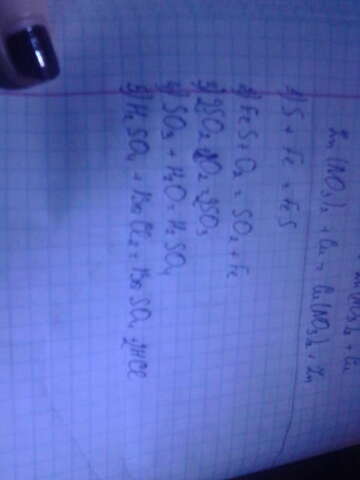 Zn(NO3)2 + Cu = Cu(NO3)2 + Zn
1) S + Fe = FeS
2) FeS + O2 = SO2 + Fe
3) 2SO2 + O2 = 2SO3
4) SO3 + H2O = H2SO4
5) H2SO4 + BaCl2 = BaSO4 + 2HCl